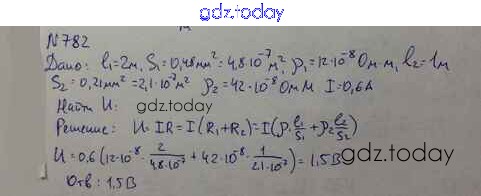 gdz.today
N782
Дано: l₁=2м, S₁=0,48мм²=4,8·10⁻⁷м², ρ₁=12·10⁻⁸Ом·м, l₂=1м
S₂=0,21мм²=2,1·10⁻⁷м² ρ₂=42·10⁻⁸Ом·м I=0,6А
Найти U:
gdz.today
gdz.today
Решение: U=IR=I(R₁+R₂)=I(ρ₁ l₁/S₁+ρ₂ l₂/S₂)
U=0,6(12·10⁻⁸·2/4,8·10⁻⁷+42·10⁻⁸·1/2,1·10⁻⁷)=1,5В
gdz.today
Отв: 1,5В
gdz.today